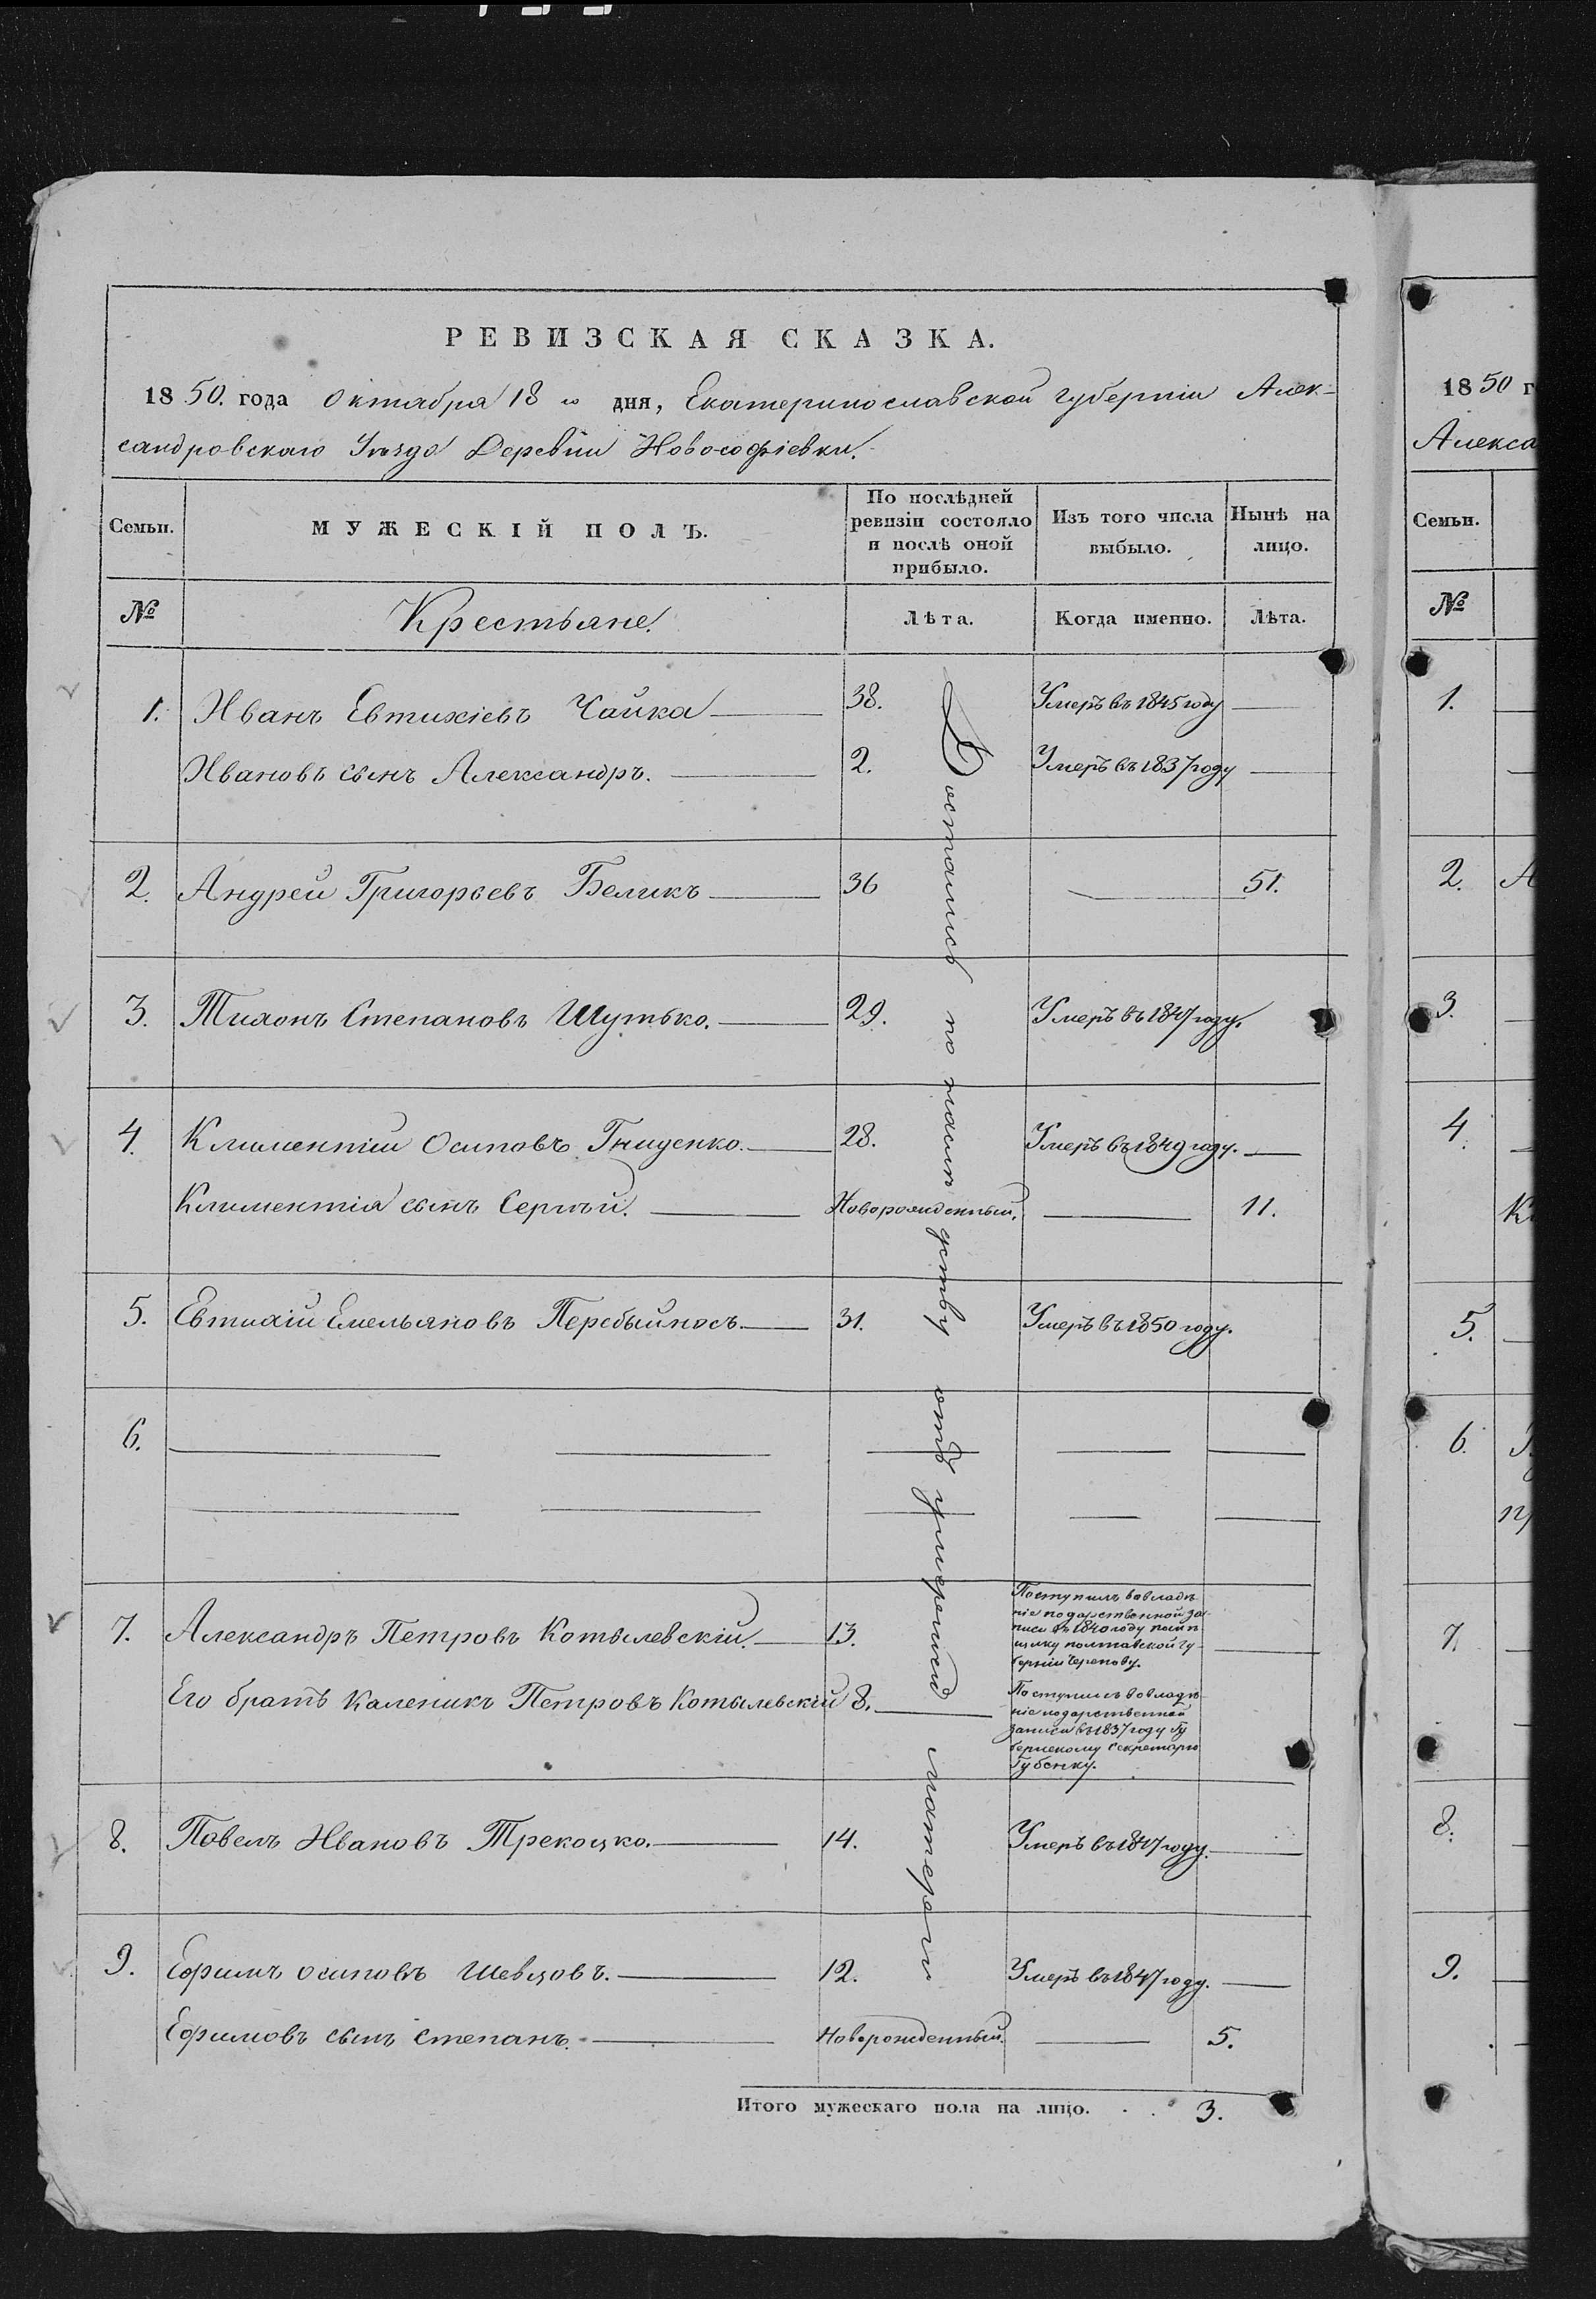 РЕВИЗСКАЯ СКАЗКА.
1850. года Октября 18 го дня, Екатеринославской губерніи Алек-
сандровскаго Уѣзда Деревни Новософіевки.
Семьи.
МУЖЕСКІЙ ПОЛЪ.
По послѣдней
ревизіи состояло
и послѣ оной
прибыло.
Изъ того числа
выбыло.
Нынѣ на
лицо.
№ Крестьяне. Лѣта. Когда именно. Лѣта.
1. Иванъ Евтихіевъ Чайка 38. Умеръ въ 1845 году
Ивановъ сынъ Александръ. 2. Умеръ въ 1837 году
2. Андрей Григорьевъ Беликъ 36 51.
3. Тихонъ Степановъ Шутько. 29. Умеръ въ 1847 году.
4. Климентій Осиповъ Гниденко. 28. Умеръ въ 1849 году.
Климентія сынъ Сергѣй. Новорожденный. 11.
5. Евтихій Емельяновъ Перебыйносъ. 31. Умеръ въ 1850 году.
6.
7. Александръ Петровъ Котылевскій. 13.
Поступилъ вовладѣ-
ніе подарственной за-
писи въ 1840 году
полтавской гу-
берніи
Его братъ Каленикъ Петровъ Котылевскій 8.
Поступилъ вовладѣ-
ніе подарственной
записи въ 1837 году Гу
бернскому Секретарю
Губенку.
8. Павелъ Ивановъ 14. Умеръ въ 1847 году.
9. Ефимъ Осиповъ Шевцовъ. 12. Умеръ въ 1847 году.
Ефимовъ сынъ Степанъ. Новорожденный. 5.
Достались по наслѣдству отъ умершей матери
Итого мужескаго пола на лицо. . . 3.
1850 г
Алекса
Семьи.
№
1.
2. А
3.
4.
Кл
5.
6.
7.
8.
9.